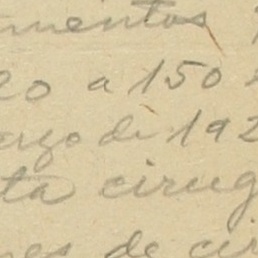 mentos
20 a 150
arzo de 192
ta cirug
nes de cir